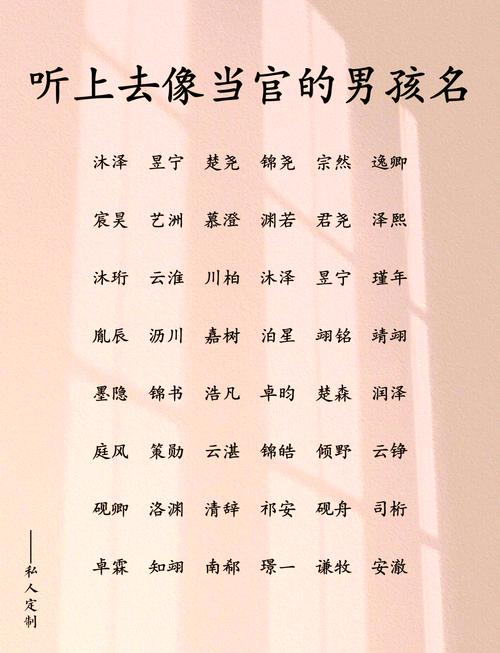 听上去像当官的男孩名
沐泽 昱宁 楚尧 锦尧 宗然 逸卿
宸昊 艺洲 慕澄 渊若 君尧 泽熙
沐珩 云淮 川柏 沐泽 昱宁 瑾年
胤辰 沥川 嘉树 泊星 翊铭 靖翊
墨隐 锦书 浩凡 卓昀 楚森 润泽
庭风 策勋 云湛 锦皓 倾野 云铮
砚卿 洛渊 清辞 祁安 砚舟 司桁
卓霖 知翊 南郗 璟一 谦牧 安澈
私人定制